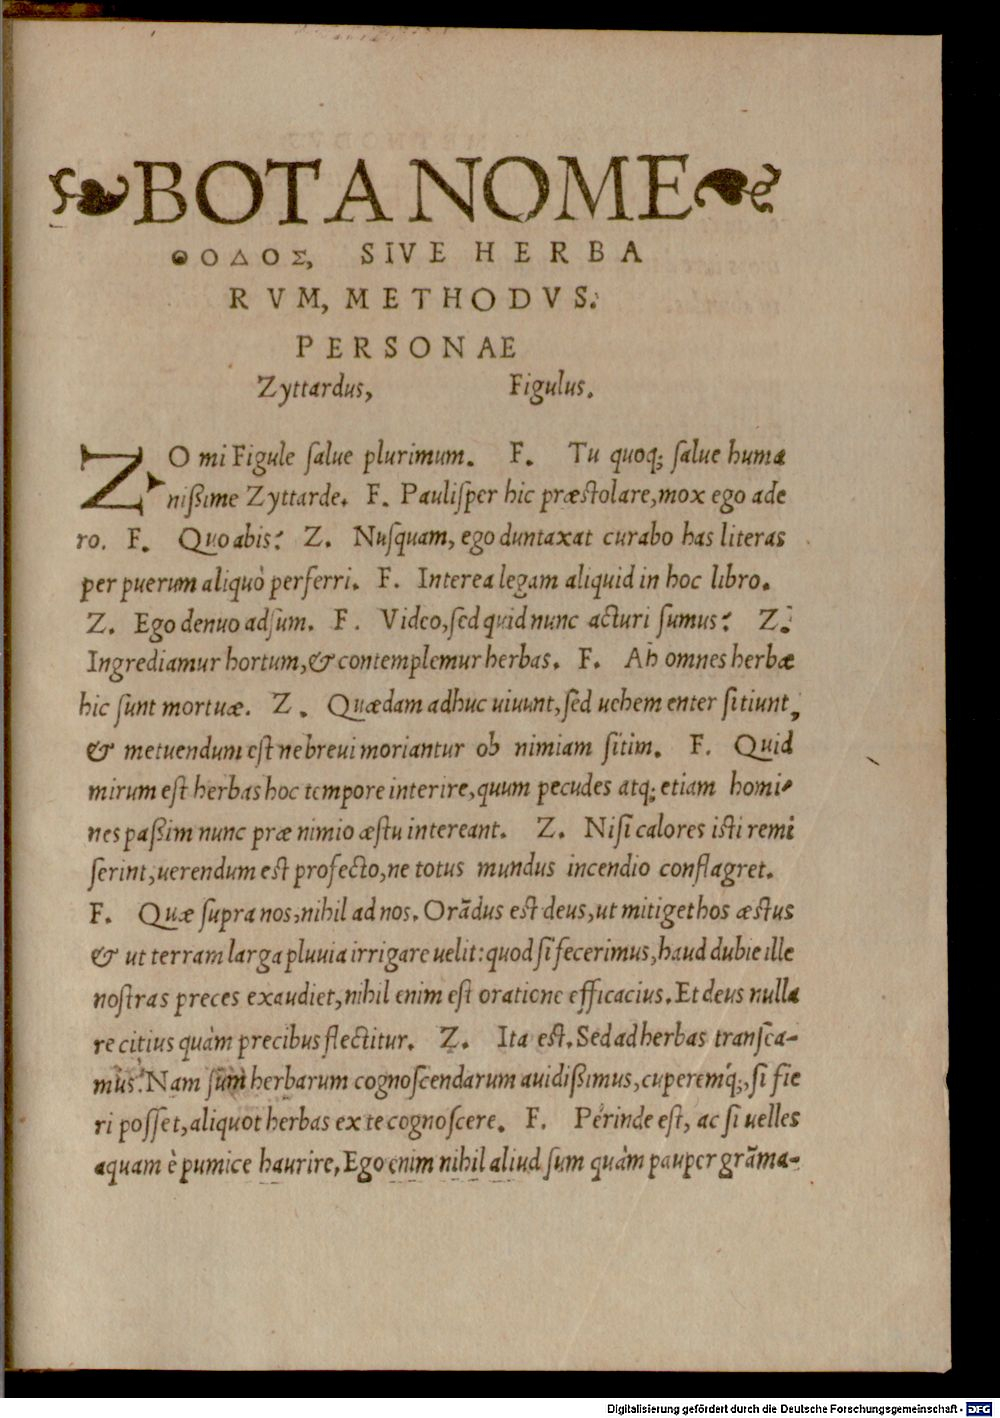 BOTANOME
ΘΟΔΟΣ, SIVE HERBA
RVM, METHODVS.
PERSONAE
Zyttardus, Figulus.
ZO mi Figule ſalue plurimum. F. Tu quoq; ſalue huma
nißime Zyttarde. F. Pauliſper hic præſtolare, mox ego ade
ro. F. Quo abis? Z. Nuſquam, ego duntaxat curabo has literas
per puerum aliquò perferri. F. Interea legam aliquid in hoc libro.
Z. Ego denuo adſum. F. Video, ſed quid nunc acturi ſumus? Z.
Ingrediamur hortum, & contemplemur herbas. F. Ah omnes herbæ
hic ſunt mortuæ. Z. Quædam adhuc uiuunt, ſed uehementer ſitiunt,
& metuendum eſt ne breui moriantur ob nimiam ſitim. F. Quid
mirum eſt herbas hoc tempore interire, quum pecudes atq; etiam homi-
nes paßim nunc præ nimio æſtu intereant. Z. Niſi calores iſti remi
ſerint, uerendum eſt profecto, ne totus mundus incendio conflagret.
F. Quæ ſupra nos, nihil ad nos. Orãdus eſt deus, ut mitiget hos æſtus
& ut terram larga pluuia irrigare uelit: quod ſi fecerimus, haud dubie ille
noſtras preces exaudiet, nihil enim eſt oratione efficacius. Et deus nulla
re citius quàm precibus flectitur. Z. Ita eſt. Sed ad herbas tranſea-
mus. Nam ſum herbarum cognoſcendarum auidißimus, cuperemq́;, ſi fie
ri poſſet, aliquot herbas ex te cognoſcere. F. Perinde eſt, ac ſi uelles
aquam è pumice haurire, Ego enim nihil aliud ſum quàm pauper grãma-
Digitalisierung gefördert durch die Deutsche Forschungsgemeinschaft - DFG